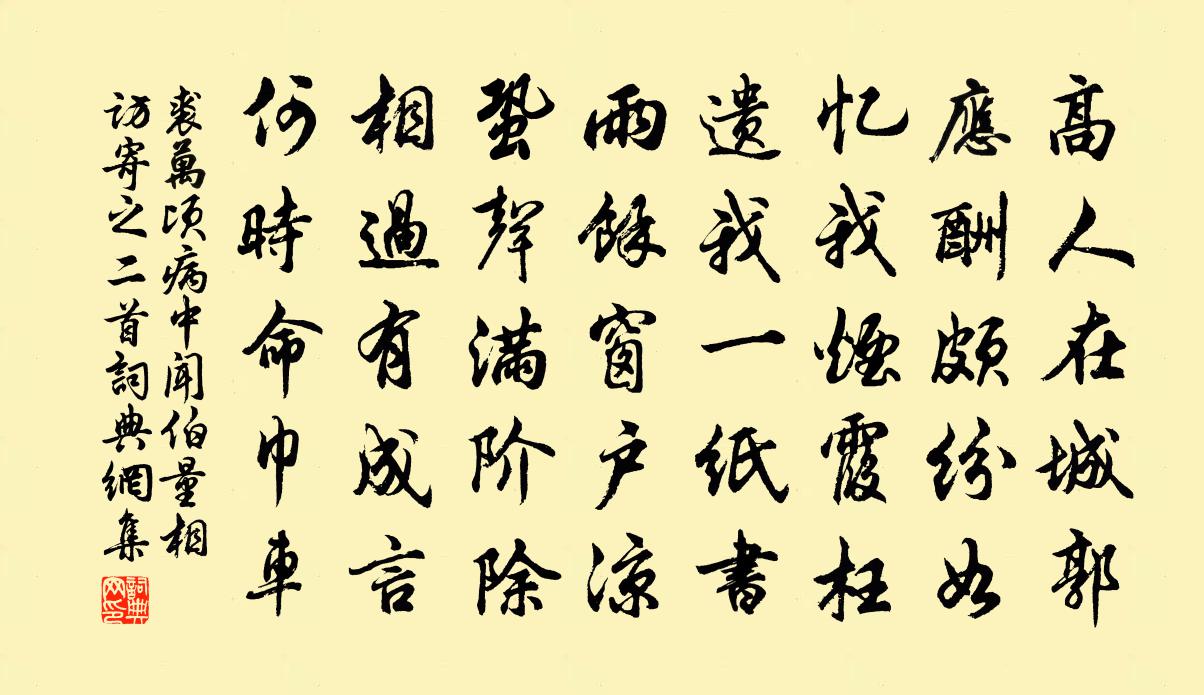 高人在城郭
應酬頗紛如
忆我煙霞
遺我一紙書
雨餘窗户涼
蛩聲满阶除
相過有成言
何時命巾車
裘萬顷病中闻伯量相
访寄之二首詞典網集
詞典網印